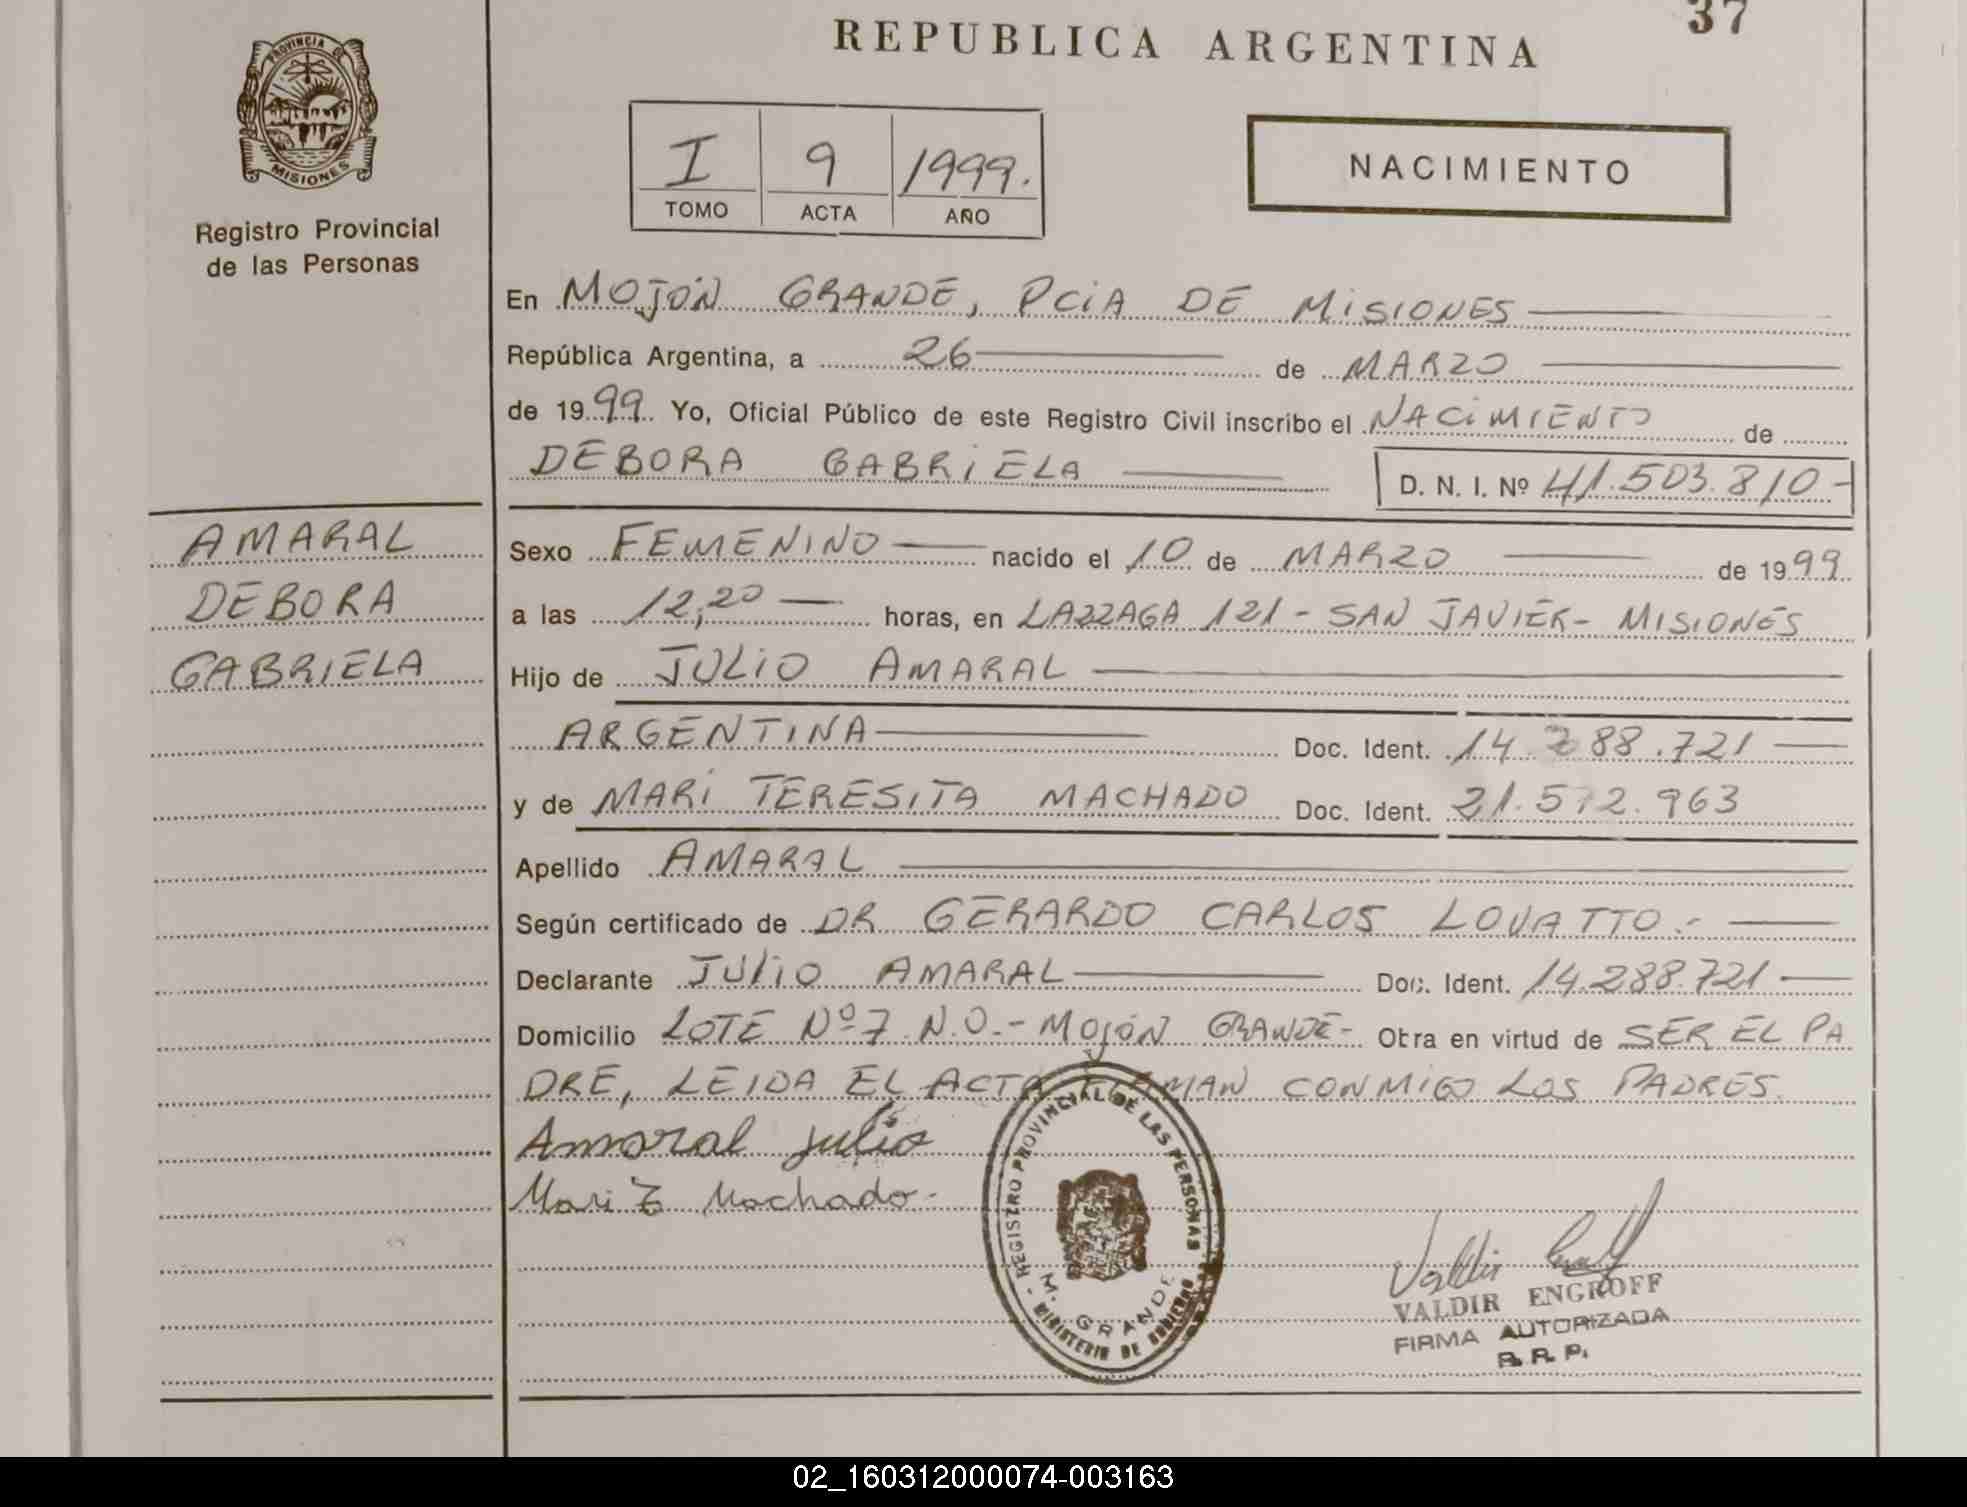 37
REPUBLICA ARGENTINA
PROVINCIA DE
MISIONES
Registro Provincial
de las Personas
I 9 1999.
TOMO ACTA AÑO
NACIMIENTO
En MOJÓN GRANDE, PCIA DE MISIONES
República Argentina, a 26 de MARZO
de 1999. Yo, Oficial Público de este Registro Civil inscribo el NACIMIENTO de
DEBORA GABRIELA D. N. I. Nº 41.503.810-
AMARAL
DEBORA
GABRIELA
Sexo FEMENINO nacido el 10 de MARZO de 1999
a las 12,20 horas, en LAZZAGA 121 - SAN JAVIER - MISIONES
Hijo de JULIO AMARAL
ARGENTINA Doc. Ident. 14.288.721
y de MARI TERESITA MACHADO Doc. Ident. 21.572.963
Apellido AMARAL
Según certificado de DR GERARDO CARLOS LOVATTO.-
Declarante JULIO AMARAL Doc. Ident. 14.288.721
Domicilio LOTE Nº 7 N.O.- MOJÓN GRANDE- Obra en virtud de SER EL PA
DRE, LEIDA EL ACTA FIRMAN CONMIGO LOS PADRES.
Amaral Julio
Mari T Machado.
REGISTRO PROVINCIAL DE LAS PERSONAS
M. GRANDE
MINISTERIO DE GOBIERNO
Valdir
VALDIR ENGROFF
FIRMA AUTORIZADA
R. R. P.
02_160312000074-003163